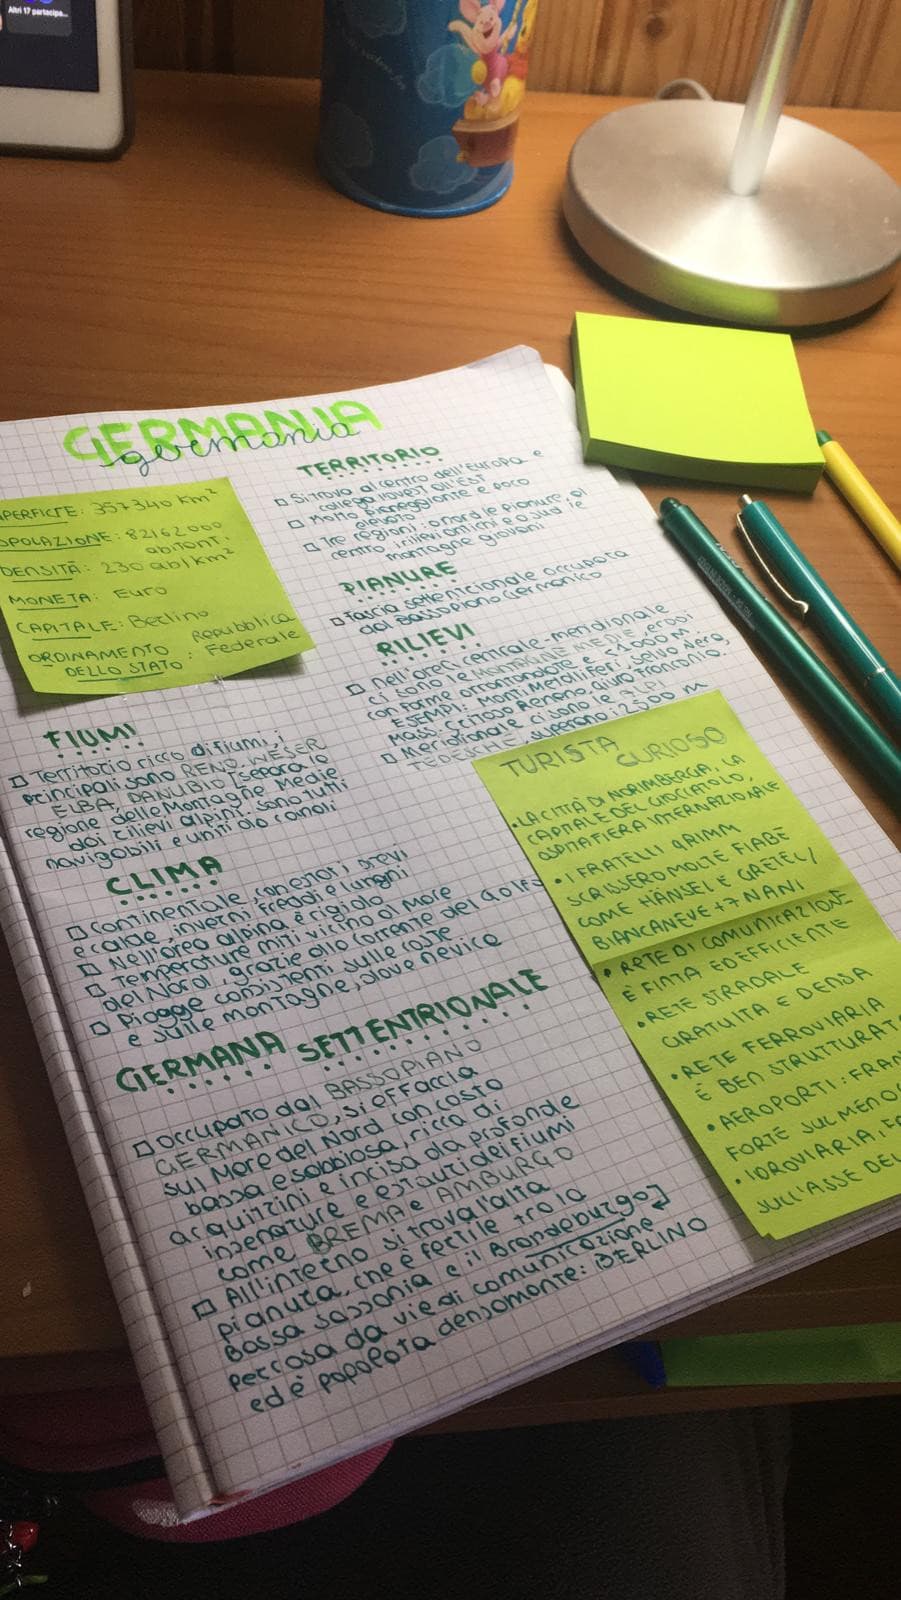 Altri 17 partecipa...
GERMANIA
germania
SUPERFICIE: 357340 Km²
POPOLAZIONE: 82162000
abitanti.
DENSITÀ: 230 ab/km²
MONETA: Euro
CAPITALE: Berlino
ORDINAMENTO Repubblica
DELLO STATO: Federale
TERRITORIO
Si trova al centro dell'Europa e
collega l'ovest all'EST
Molto pianeggiante e poco
elevato
Tre regioni: a nord le pianure, al
centro i rilievi antichi e a sud le
montagne giovani
PIANURE
fascia settentrionale occupata
dal Bassopiano Germanico
RILIEVI
Nell'area centrale-meridionale
ci sono le MONTAGNE MEDIE, erosi
con forme arrotondate e <1000 m
ESEMPI: Monti Metalliferi, Selva Nera,
Mass. Scitoso Renano, Giura Francone.
Meridionale ci sono le ALPI
TEDESCHE, superano i 2500 m
FIUMI
Territorio ricco di fiumi, i
principali sono RENO, WESER
ELBA, DANUBIO (separa la
regione delle Montagne Medie
dai rilievi alpini. sono tutti
navigabili e uniti da canali
CLIMA
Continentale, con estati brevi
e calde, inverni freddi e lunghi
Nell'area alpina è rigido
Temperature miti vicino al Mare
del Nord, grazie alla corrente del Golfo
Piogge consistenti sulle coste
e sulle montagne, dove nevica
GERMANA SETTENTRIONALE
Occupata dal BASSOPIANO
GERMANICO, si affaccia
sul Mare del Nord con costa
bassa e sabbiosa, ricca di
acquitrini e incisa da profonde
insenature e estauri dei fiumi
come BREMA e AMBURGO
All'interno si trova l'alta
pianura, che è fertile tra la
Bassa Sassonia e il Brandeburgo
percorsa da vie di comunicazione
ed è popolata densamente: BERLINO
TURISTA CURIOSO
• LA CITTÀ DI NORIMBERGA, LA
CAPITALE DEL GIOCATTOLO,
OSPITA FIERA INTERNAZIONALE
• I FRATELLI GRIMM
SCRISSERO MOLTE FIABE
COME HÄNSEL E GRETEL/
BIANCANEVE + 7 NANI
• RETE DI COMUNICAZIONE
È FINTA ED EFFICIENTE
• RETE STRADALE
GRATUITA E DENSA
• RETE FERROVIARIA
È BEN STRUTTURAT
• AEROPORTI: FRAN
FORTE SUL MENO
• IDROVIARIA, FO
SULL'ASSE DEL